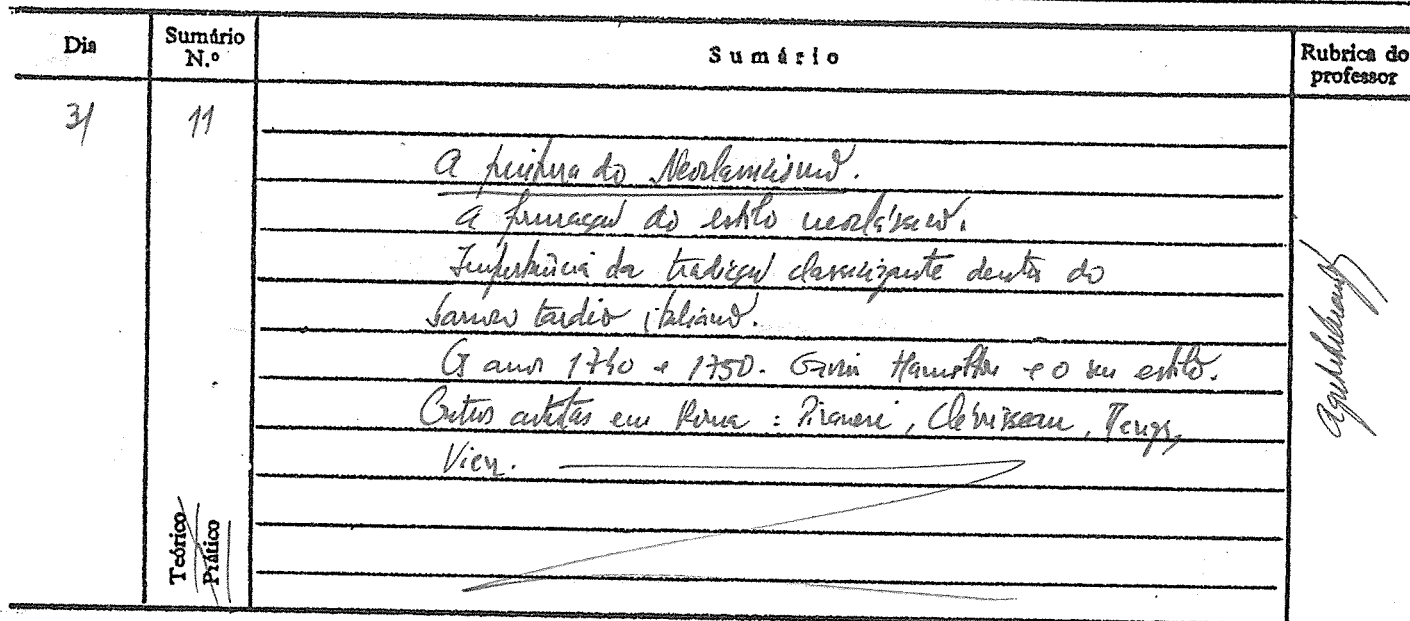 Dia Sumário N.º Sumário Rubrica do professor
31 11
A pintura do Neoclassicismo.
A formação do estilo neoclássico.
Importância da tradição classicizante dentro do
barroco tardio italiano.
Os anos 1740 e 1750. Gavin Hamilton e o seu estilo.
Outros artistas em Roma: Piranesi, Clérisseau, Mengs,
Vien.
Teórico
Prático